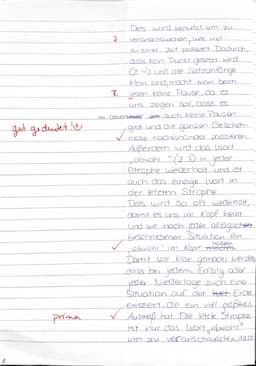 Dies wird benutzt um zu
veranschaulichen, wie viel
zu einer Zeit passiert. Dadurch,
dass kein Punkt gesetzt wird
(Z. 4) und alle Satzanfänge
klein sind, macht man beim
R lesen keine Pause, da es
uns zeigen soll, dass es
im Leben auch keine Pausen
gut gedeutet! gibt und die ganzen Gescheh-
nisse nacheinander passieren.
Außerdem wird das Wort
„obwohl" (Z. 1) in jeder
Strophe wiederholt und ist
auch das einzige Wort in
der letzten Strophe.
Das wird so oft wiederholt,
damit es uns im Kopf bleibt
und wir nach jeder
beschriebenen Situation ein
„obwohl" im Kopf haben.
Damit soll klar gemacht werden,
dass bei jedem Erfolg oder
jeder Niederlage auch eine
Situation auf der Erde
existiert, die ein viel größeres
prima Ausmaß hat. Die letzte Strophe
ist nur das Wort „obwohl"
um zu veranschaulichen,